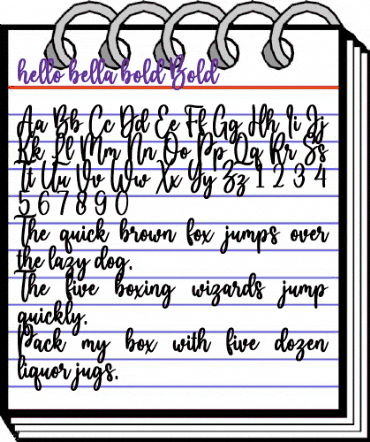 hello bella bold Bold
Aa Bb Cc Dd Ee Ff Gg Hh Ii Jj
Kk Ll Mm Nn Oo Pp Qq Rr Ss
Tt Uu Vv Ww Xx Yy Zz 1 2 3 4
5 6 7 8 9 0
The quick brown fox jumps over
the lazy dog.
The five boxing wizards jump
quickly.
Pack my box with five dozen
liquor jugs.